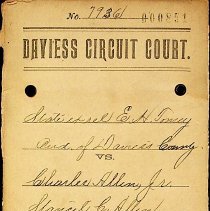 No. 7936
000851
DAVIESS CIRCUIT COURT.
State ex rel E. H. Toney
Aud. of Daviess County
VS.
Charles Allen, Jr.